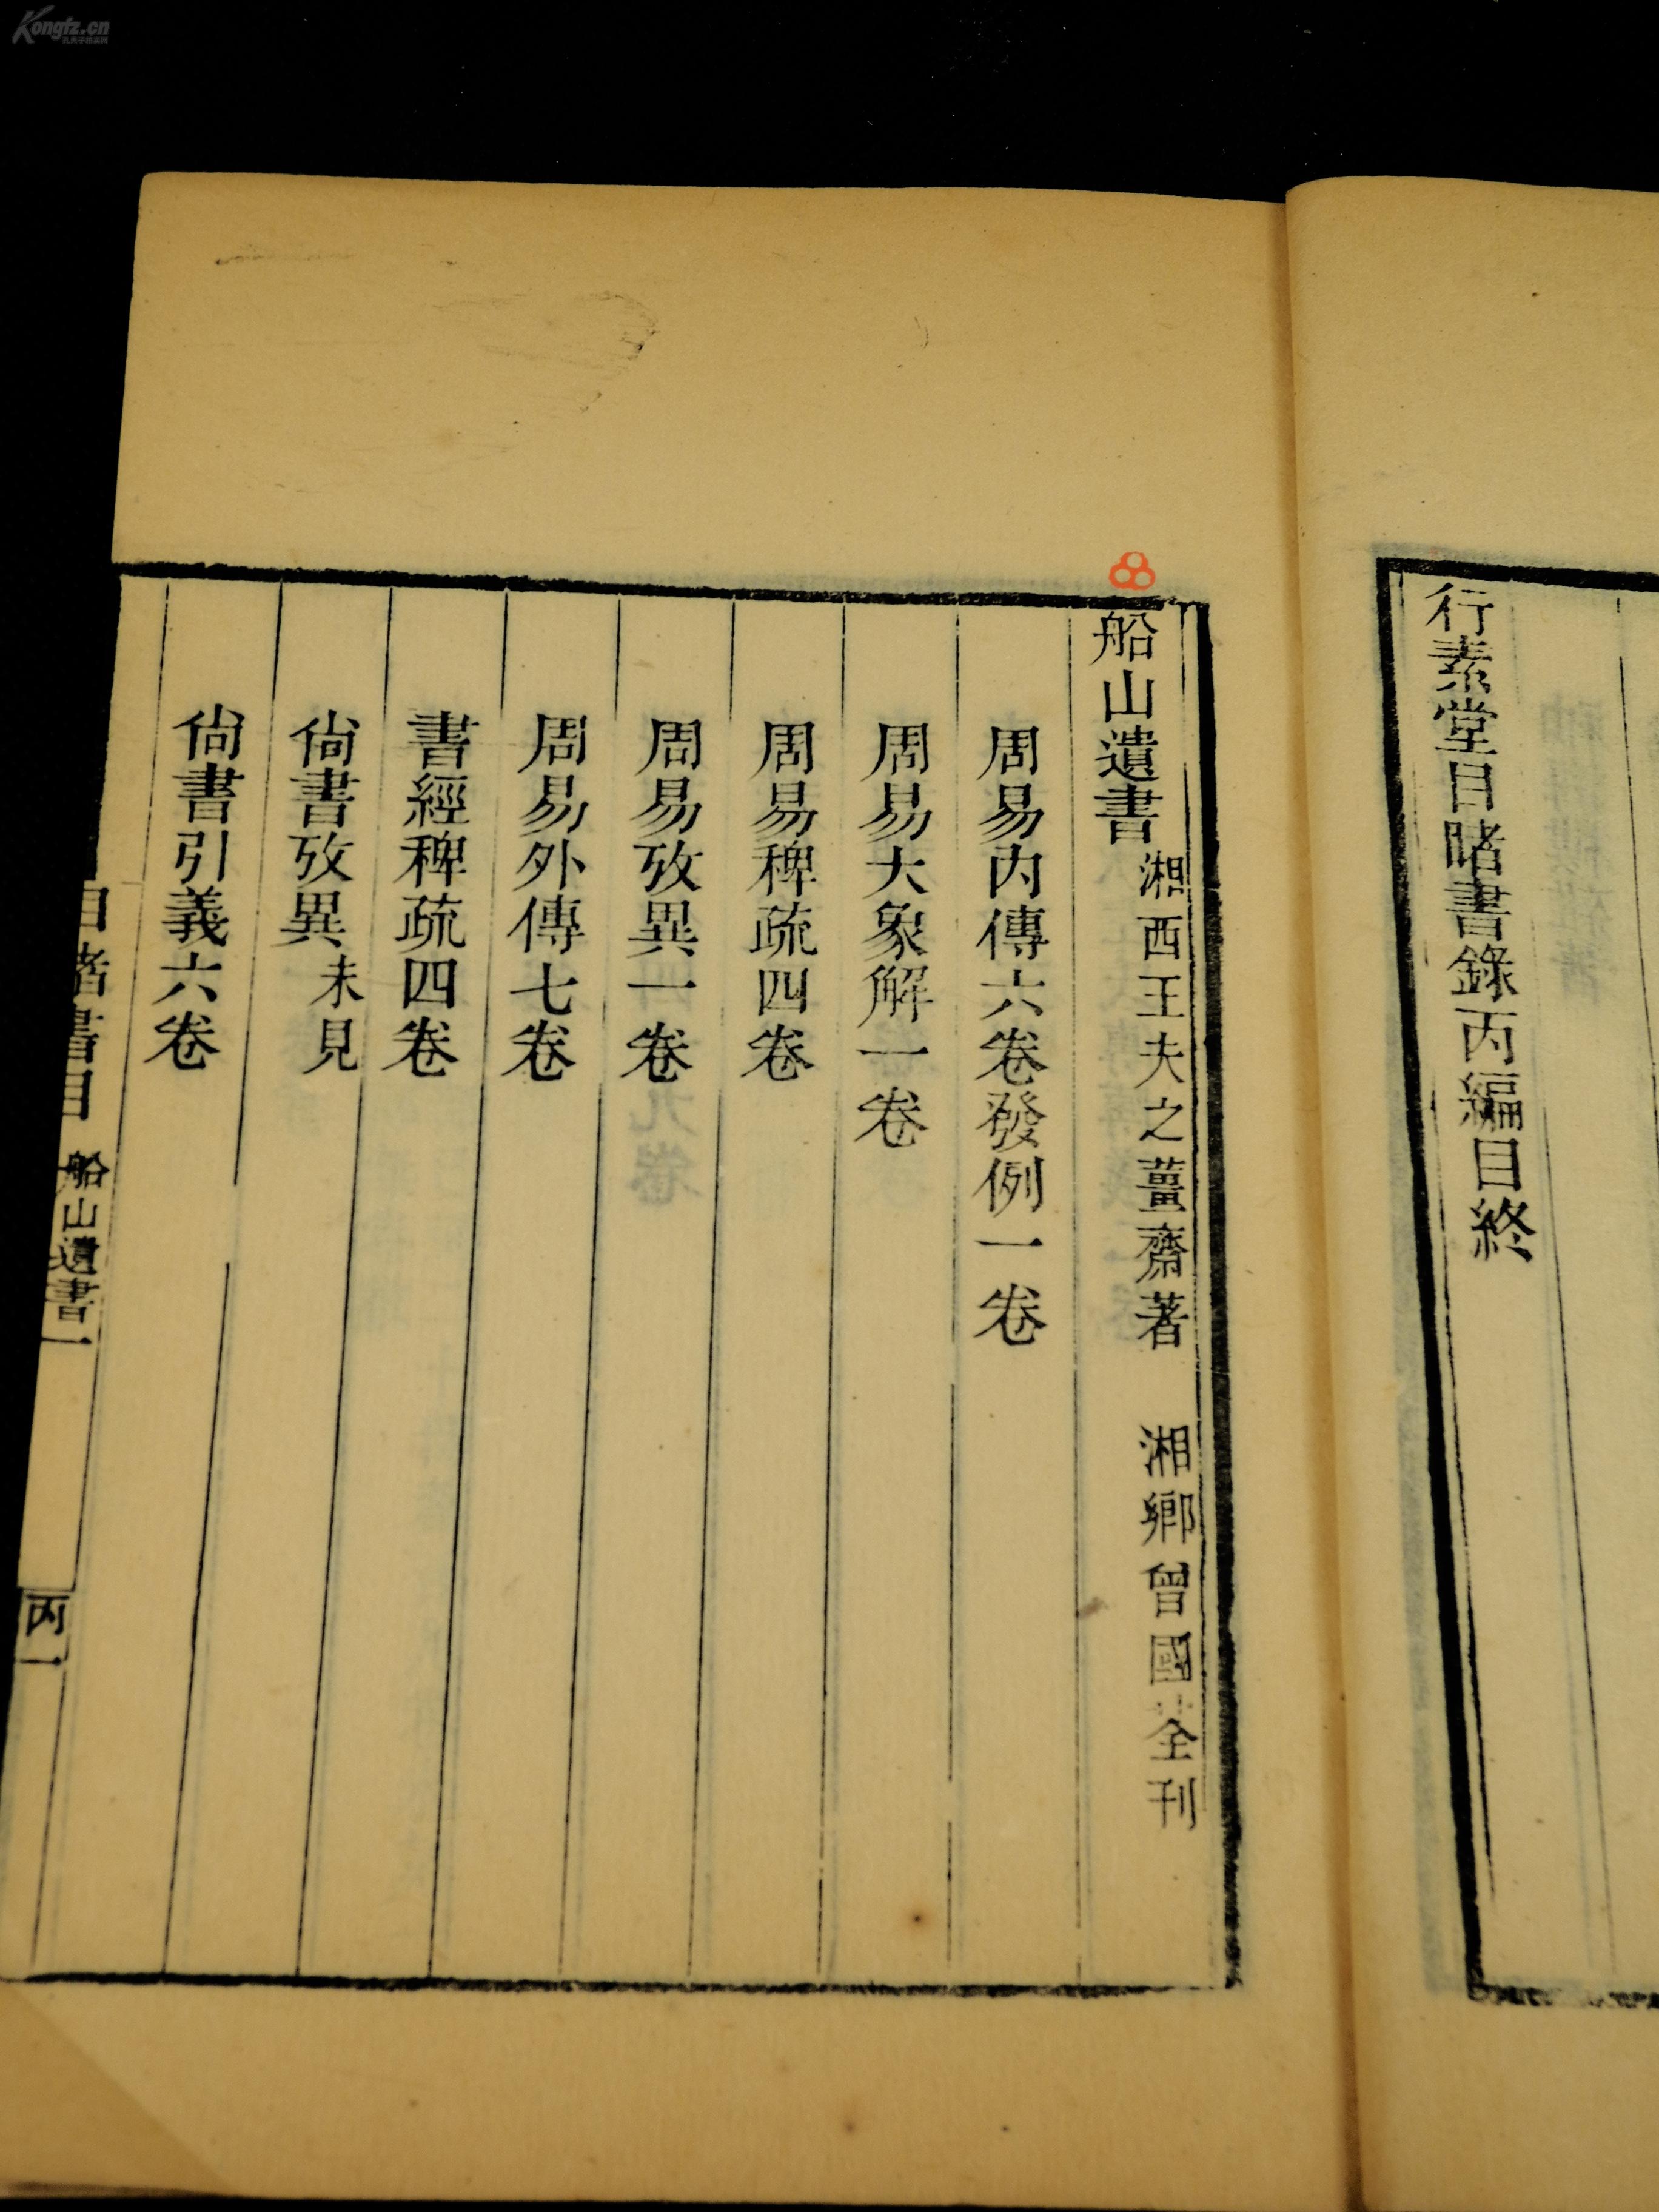 Kongfz.cn
行素堂目睹書錄丙編目終
船山遺書 湘西王夫之薑齋著 湘鄉曾國荃刊
周易內傳六卷發例一卷
周易大象解一卷
周易稗疏四卷
周易攷異一卷
周易外傳七卷
書經稗疏四卷
尙書攷異未見
尙書引義六卷
目睹書目 船山遺書一 丙一